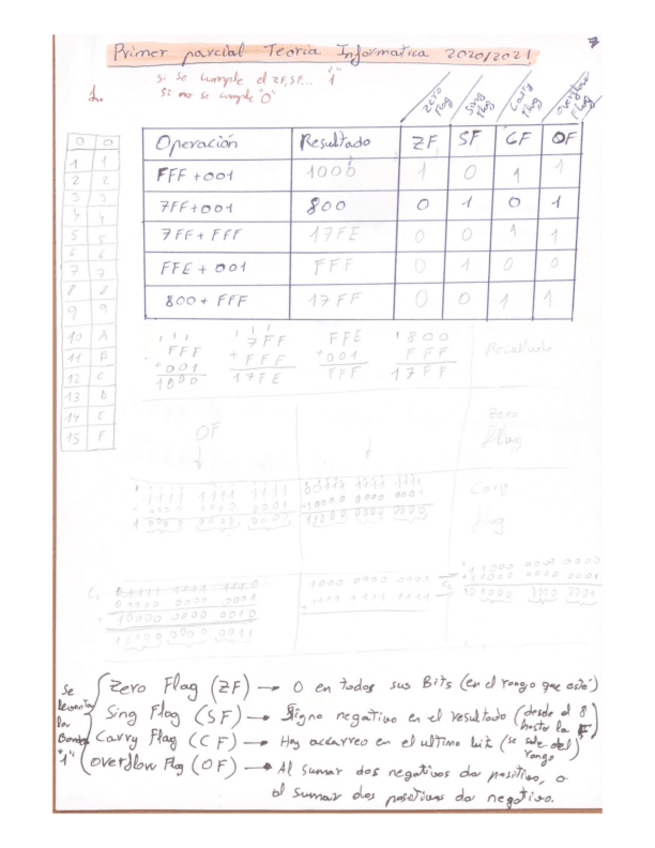 Primer parcial Teoría Informatica 2020/2021
7
si se cumple el ZF, SF... "1"
si no se cumple "0"
1.
Zero flag
Sing flag
Carry flag
Overflow flag
Operación Resultado ZF SF CF OF
FFF + 001 1000 1 0 1 1
7FF + 001 800 0 1 0 1
7FF + FFF 17FE 0 0 1 1
FFE + 001 FFF 0 1 0 0
800 + FFF 17FF 0 0 1 1
0 0
1 1
2 2
3 3
4 4
5 5
6 6
7 7
8 8
9 9
10 A
11 B
12 C
13 D
14 E
15 F
1 1 1
FFF
+ 001
1000
1 1 1
7FF
+ FFF
17FE
FFE
+ 001
FFF
1 800
FFF
17FF
Resultado
Zero
flag
OF
1
1111 1111 1111
0000 0000 0001
1 0000 0000 0000
Carry
flag
1000 0000 0000
1111 1111 1111
Se levanta la Bandera "1"
Zero Flag (ZF) → 0 en todos sus Bits (en el rango que esté)
Sing Flag (SF) → Signo negativo en el resultado (desde el 8 hasta la F)
Carry Flag (CF) → Hay acarreo en el ultimo bit (se sale del rango
Overflow Flg (OF) → Al sumar dos negativos da positivo, o
al sumar dos positivos da negativo.